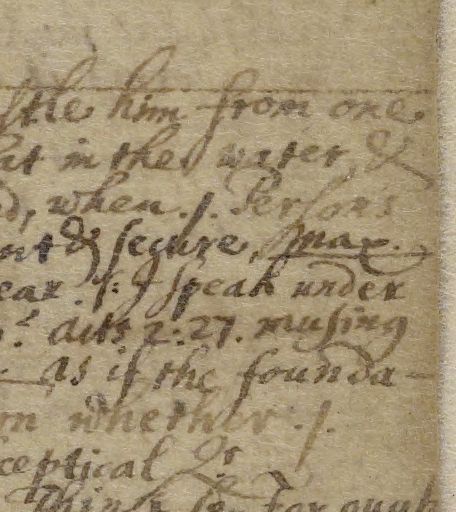 stle him from one
at in the water &
d, when ./. Person's
nt & secure, max.
ear. /: I speak under
s.t Acts 2:27. musing
– as if the founda–
m whether ./.
ceptical Qr